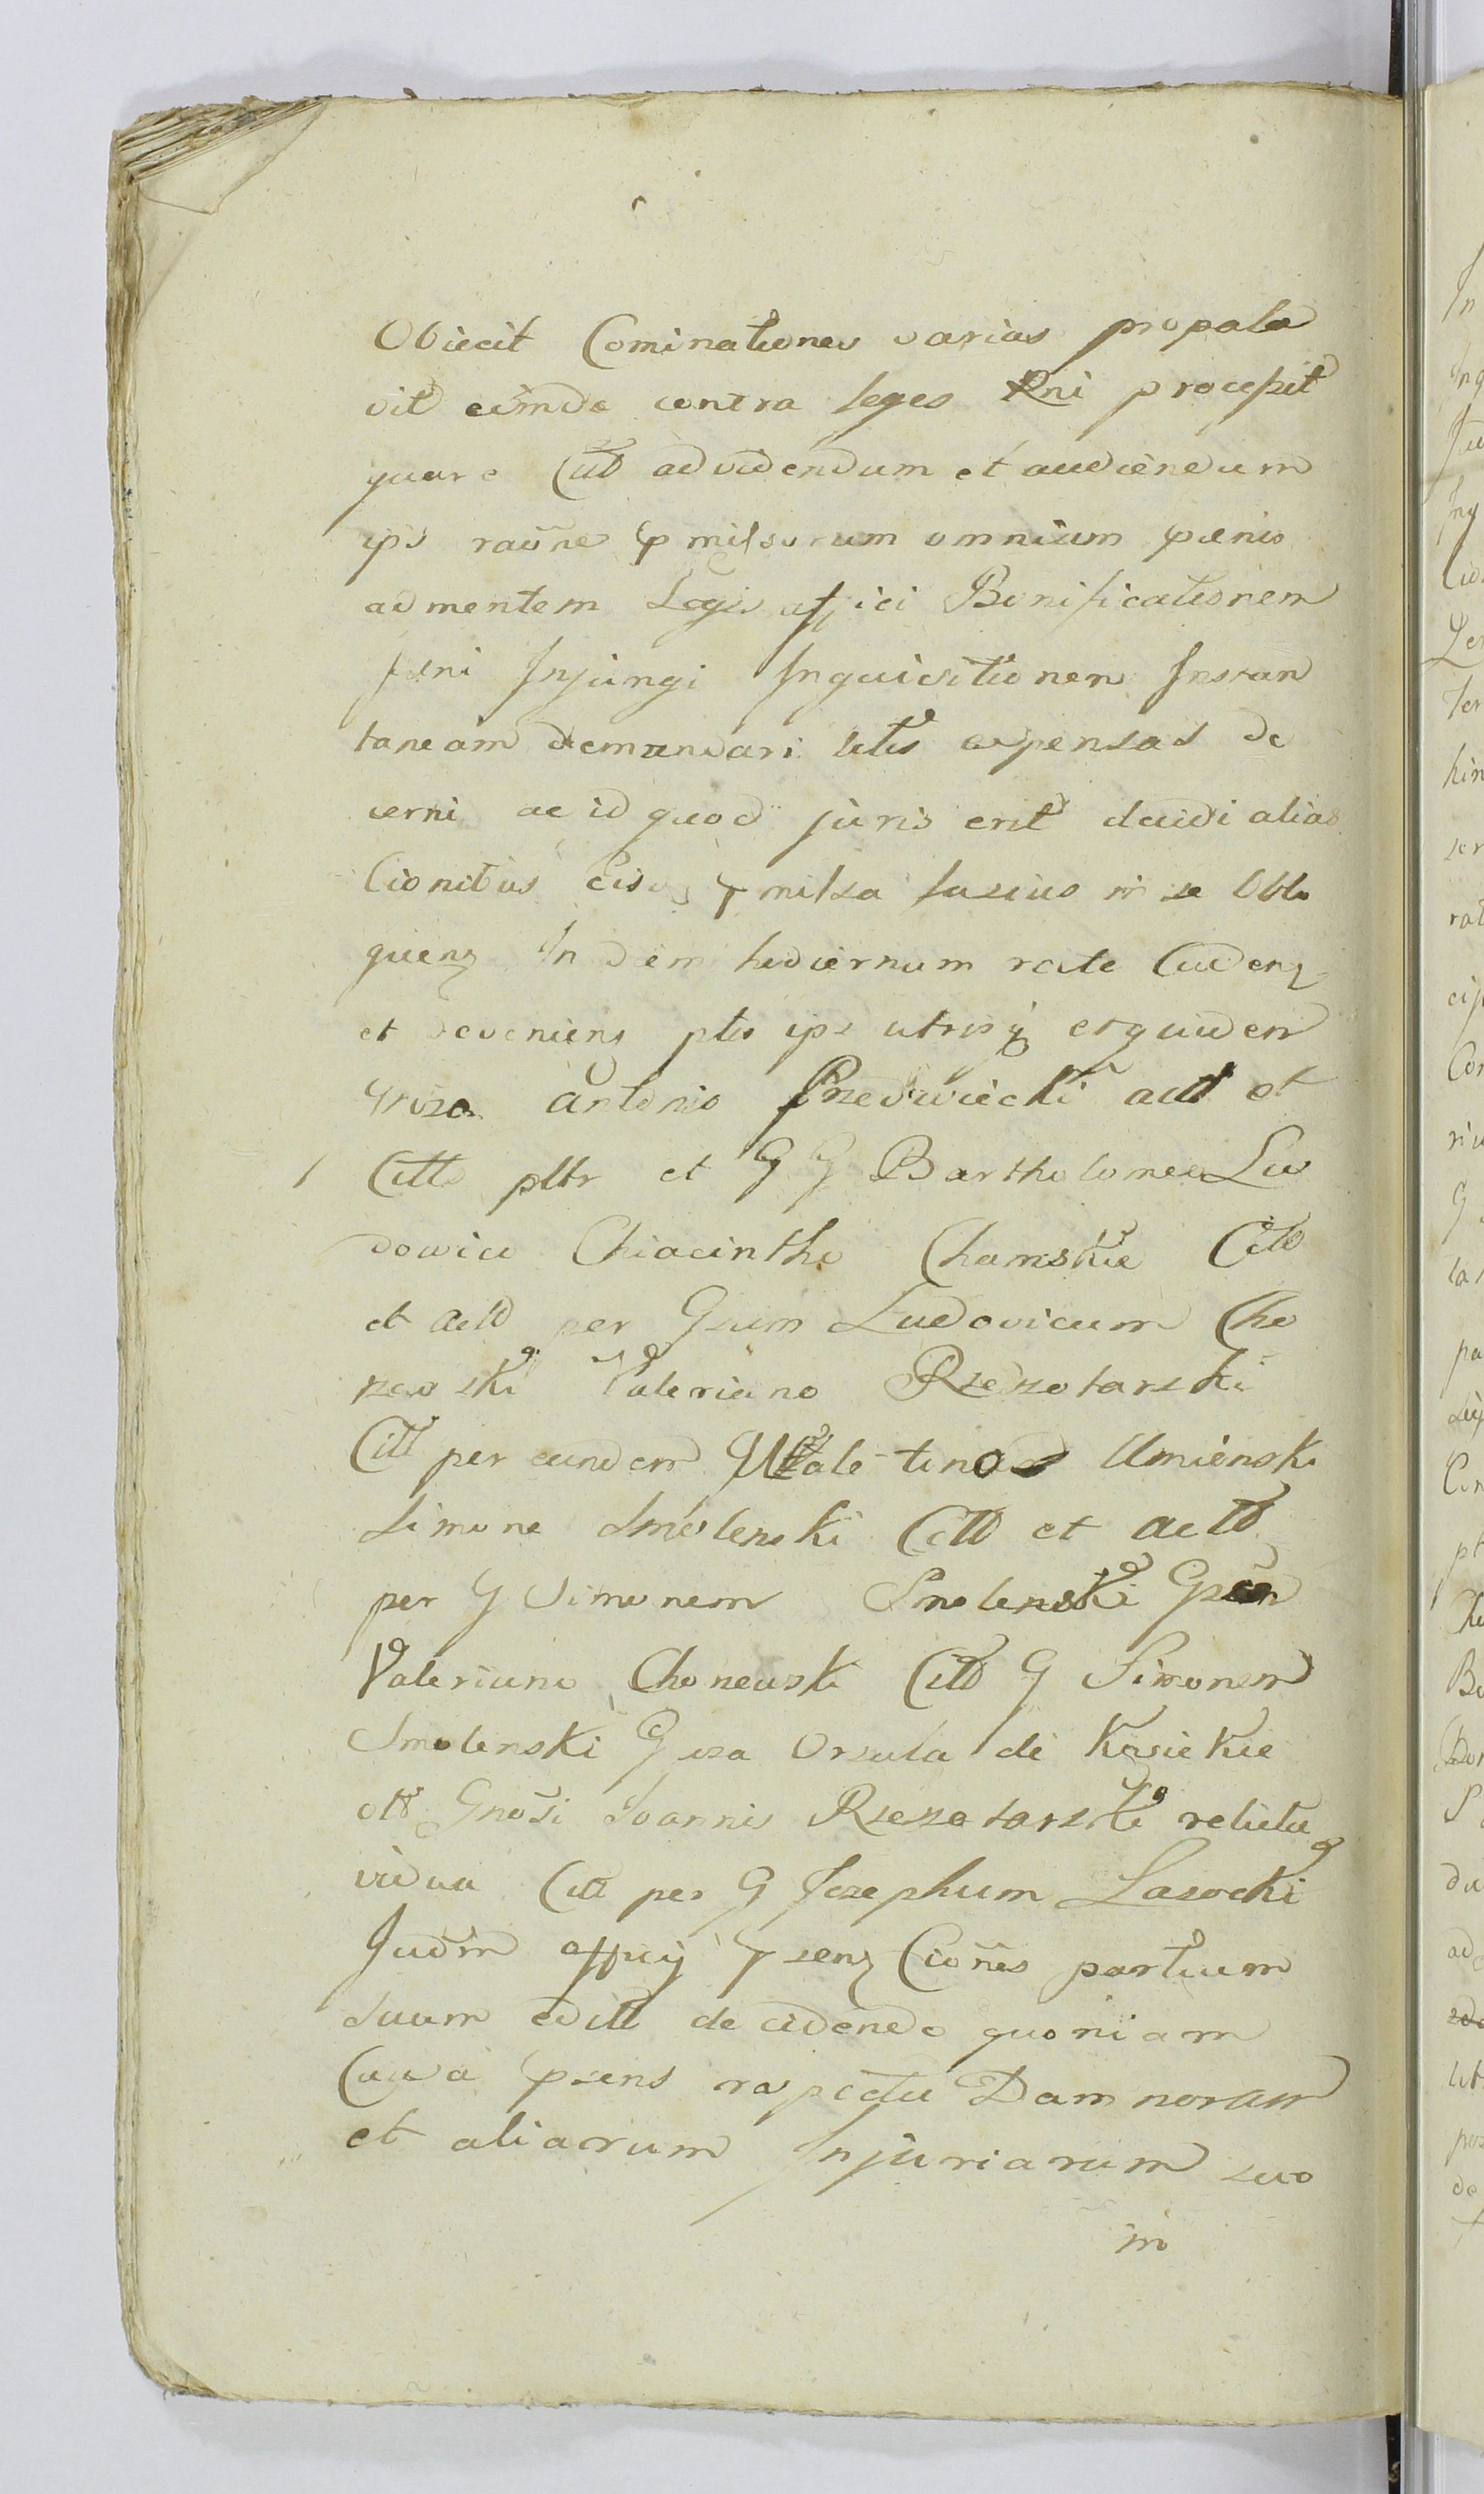 Obiecit Cominationes varias propala
vit eimde contra leges Rni processit
quare Citt ad videndum et audiendum
ips raõne pmissorum omnium pænis
ad mentem Legis affici Bonificationem
fieni Injungi Inquisitionem Instan
taneam demandari litis expensas de
cerni ac id quod juris erit decidi alias
Cionitus pmissa lasius in se Obło
quenz In diem hodiernum rcite Cadenz
et deveniens ptes ips utrisq et quidem
Antonio Przedwiecki actt et
Citto pltr et G G Bartholomeo Lu
dowico Chiacintho Chamskie Citt
et actt per Gsum Ludovicum Cho
newski Valeriano Rzeszotarski
Citt per eundem Umienski
Simone Smolenski Citt et actt
per G Simonem Smolenski
Valeriano Chonewski Citt G Simonem
Smolenski Gosa Orsula de Kisickie
ott Gnosi Joannis Rzeszotarski relicta
vidua Citt per G Josephum Lasocki
Judm officij psenz Ciones partium
suum editt decidendo quoniam
Causa psens raspectu Damnorum
et aliarum Injuriarum suo
in